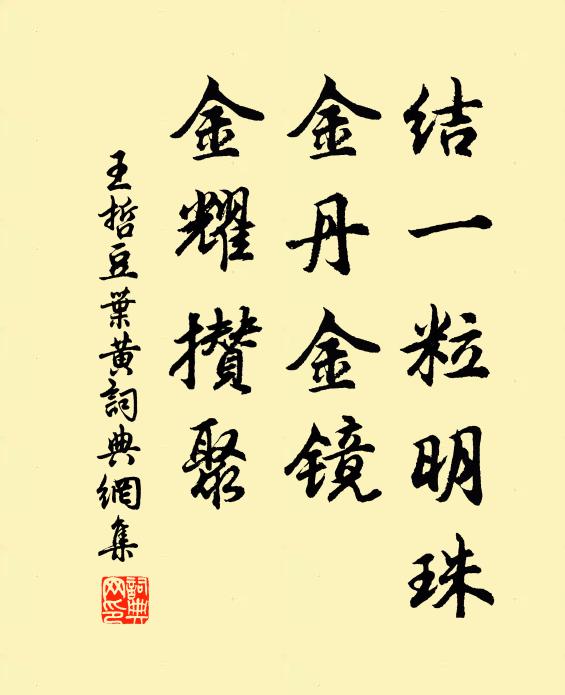 结一粒明珠
金丹金镜
金耀攅聚
王哲豆葉黄詞典網集
詞典网印